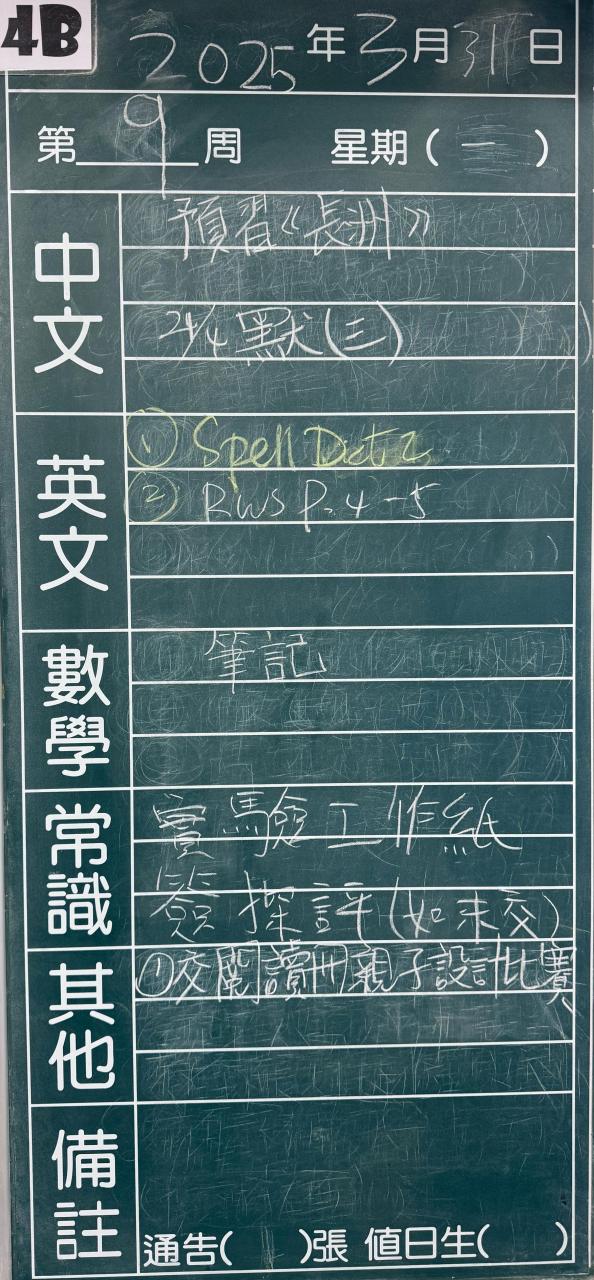 4B
2025年3月31日
第9周 星期(一)
中文
預習《長洲》
24/4 默(三)
英文
① Spell Dict 2
② RWS P.4-5
數學
筆記
常識
實驗工作紙
簽探評(如未交)
其他
①交閱讀冊親子設計比賽
備註
通告( )張 值日生( )